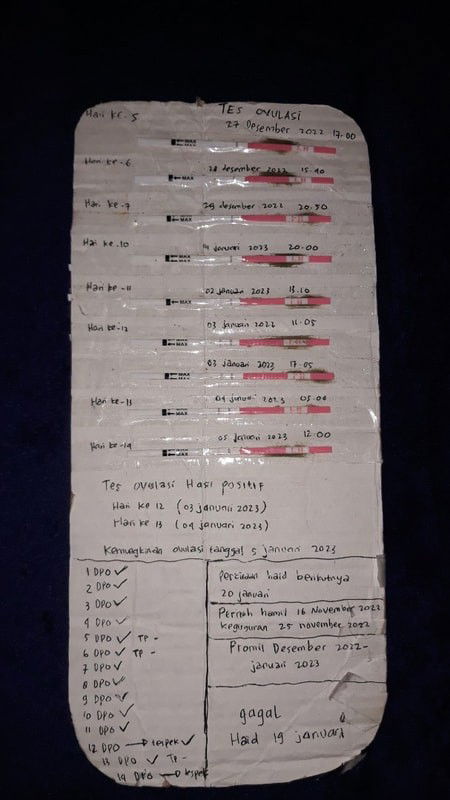 Hari ke-5 TES OVULASI
27 Desember 2022 17.00
MAX
Hari ke-6 28 desember 2022 15.40
MAX
Hari ke-7 29 desember 2022 20.50
MAX
Hari ke-10 januari 2023 20.00
MAX
Hari ke-11 02 januari 2023 13.10
MAX
Hari ke-12 03 januari 2022 11.05
MAX
03 januari 2023 17.05
MAX
Hari ke-13 04 januari 2023 05.00
MAX
Hari ke-14 05 januari 2023 12.00
MAX
Tes ovulasi Hasi positif
Hari ke 12 (03 januari 2023)
Hari ke 13 (04 januari 2023)
Kemungkinan ovulasi tanggal 5 januari 2023
1 DPO ✓
2 DPO ✓
3 DPO ✓
4 DPO ✓
5 DPO ✓ TP -
6 DPO ✓ TP -
7 DPO ✓
8 DPO ✓
9 DPO ✓
10 DPO ✓
11 DPO ✓
12 DPO → tespek ✓
13 DPO ✓ TP -
14 DPO → tespek
Perkiraan haid berikutnya
20 januari
Pernah hamil 16 November 2022
keguguran 25 november 2022
Promil Desember 2022-
januari 2023
gagal
Haid 19 januari